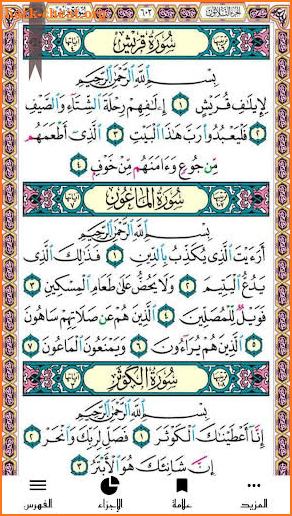 ٦٠٢ الجزء الثلاثون
سُورَةُ قُرَيْشٍ
بِسْمِ ٱللَّهِ ٱلرَّحْمَٰنِ ٱلرَّحِيمِ
لِإِيلَٰفِ قُرَيْشٍ ١ إِۦلَٰفِهِمْ رِحْلَةَ ٱلشِّتَآءِ وَٱلصَّيْفِ
٢ فَلْيَعْبُدُوا۟ رَبَّ هَٰذَا ٱلْبَيْتِ ٣ ٱلَّذِىٓ أَطْعَمَهُم
مِّن جُوعٍ وَءَامَنَهُم مِّنْ خَوْفٍۭ ٤
سُورَةُ ٱلْمَاعُونِ
بِسْمِ ٱللَّهِ ٱلرَّحْمَٰنِ ٱلرَّحِيمِ
أَرَءَيْتَ ٱلَّذِى يُكَذِّبُ بِٱلدِّينِ ١ فَذَٰلِكَ ٱلَّذِى
يَدُعُّ ٱلْيَتِيمَ ٢ وَلَا يَحُضُّ عَلَىٰ طَعَامِ ٱلْمِسْكِينِ ٣
فَوَيْلٌ لِّلْمُصَلِّينَ ٤ ٱلَّذِينَ هُمْ عَن صَلَاتِهِمْ سَاهُونَ
٥ ٱلَّذِينَ هُمْ يُرَآءُونَ ٦ وَيَمْنَعُونَ ٱلْمَاعُونَ ٧
سُورَةُ ٱلْكَوْثَرِ
بِسْمِ ٱللَّهِ ٱلرَّحْمَٰنِ ٱلرَّحِيمِ
إِنَّآ أَعْطَيْنَٰكَ ٱلْكَوْثَرَ ١ فَصَلِّ لِرَبِّكَ وَٱنْحَرْ ٢
إِنَّ شَانِئَكَ هُوَ ٱلْأَبْتَرُ ٣
المزيد علامة الإجزاء الفهرس